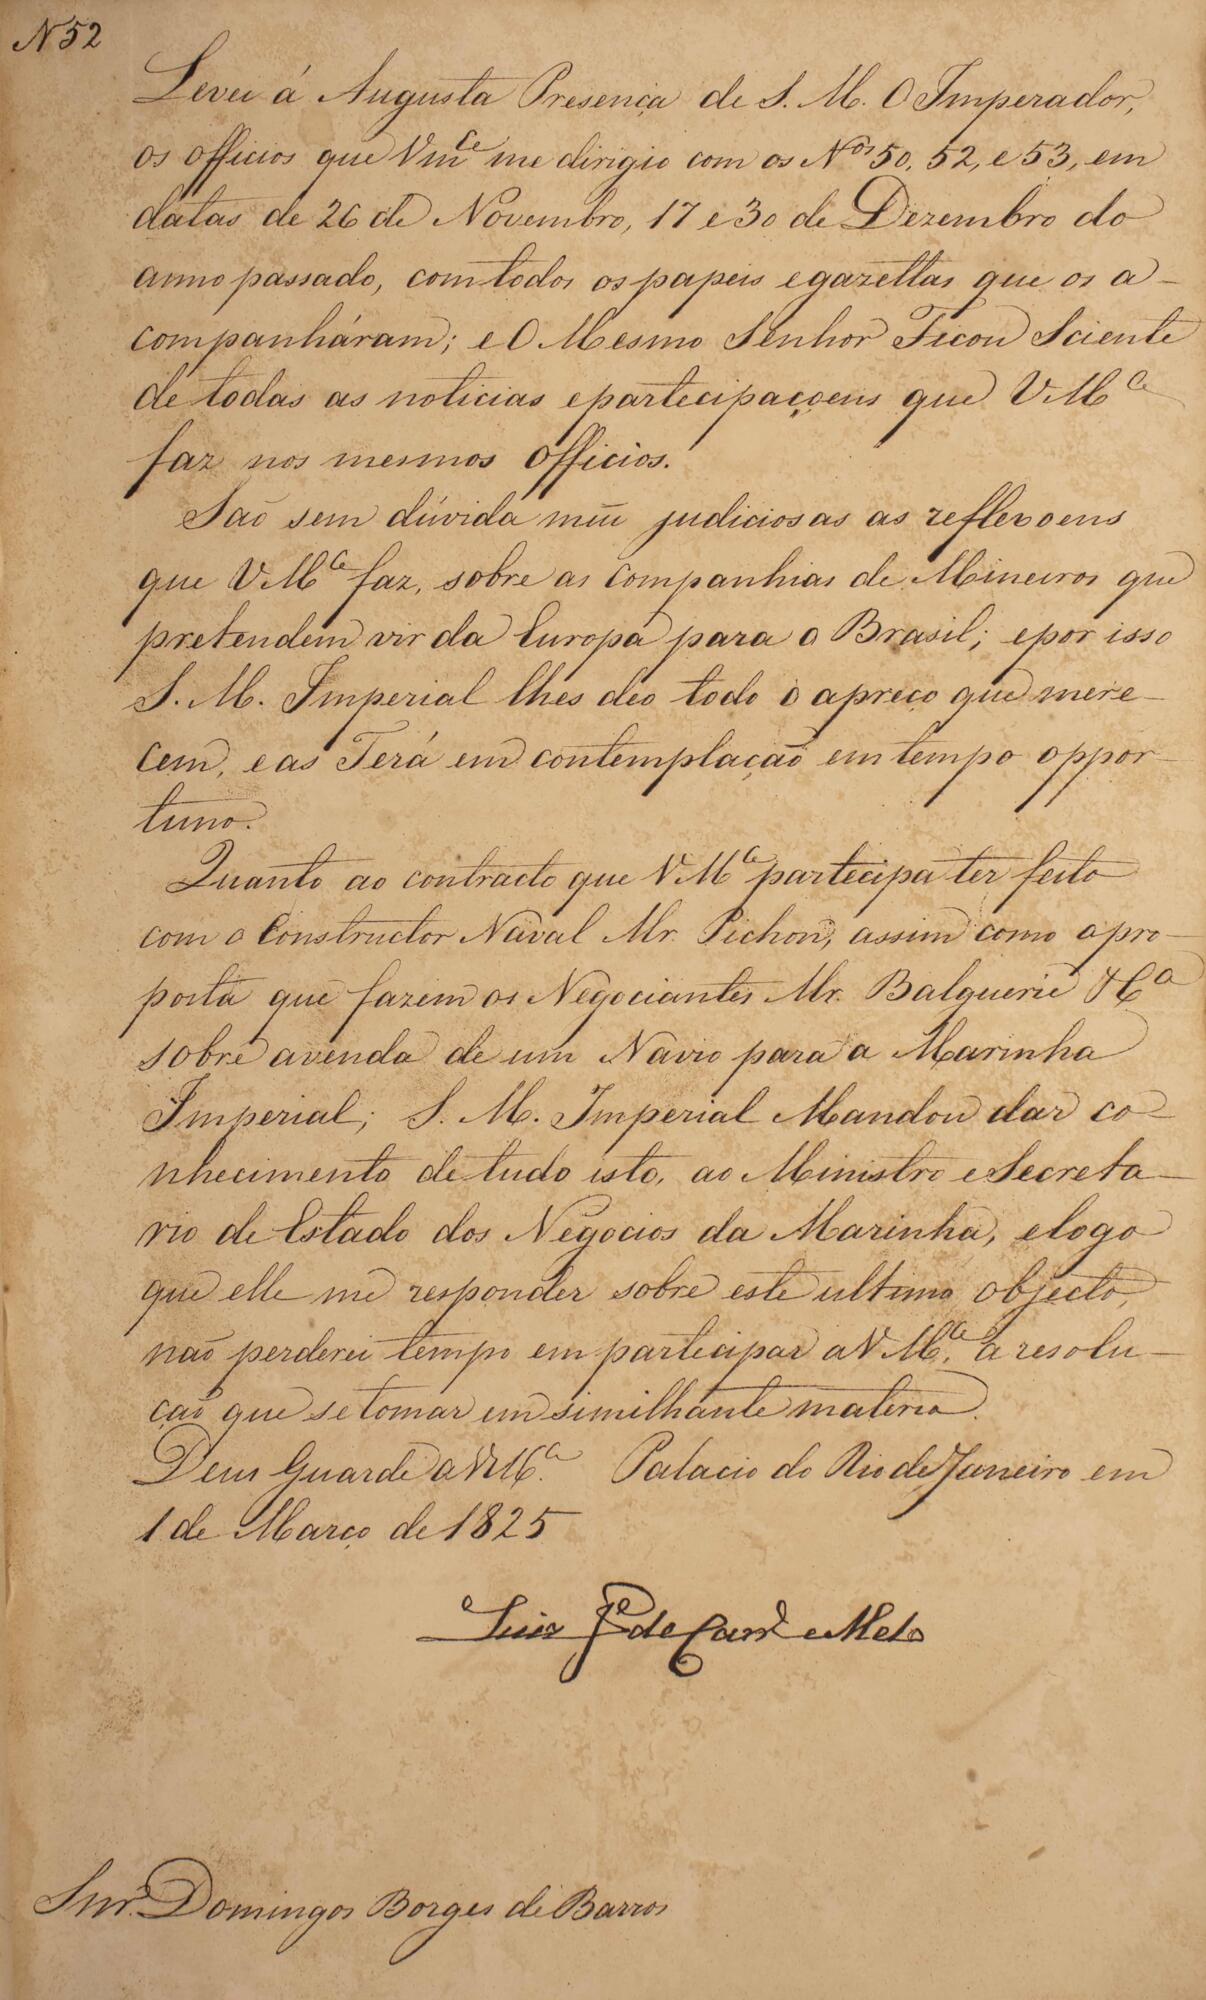 N 52
Levei á Augusta Presença de S. M. O Imperador,
os officios que Vmce me dirigio com os Nos 50, 52, e 53, em
datas de 26 de Novembro, 17 e 30 de Dezembro do
anno passado, com todos os papeis e gazettas que os a-
companháram; e O Mesmo Senhor Ficou Sciente
de todas as noticias e partecipaçoens que V Mce
faz nos mesmos officios.
São sem dúvida mũi judiciosas as reflexoens
que V Mce faz, sobre as companhias de Mineiros que
pretendem vir da Europa para o Brasil; e por isso
S. M. Imperial lhes deo todo o apreço que mere-
cem, e as Terá em contemplação em tempo oppor-
tuno.
Quanto ao contracto que V Mce partecipa ter feito
com o Constructor Naval Mr. Pichon, assim como a pro-
posta que fazem os Negociantes Mr. Balguerie & Ca
sobre a venda de um Navio para a Marinha
Imperial; S. M. Imperial Mandou dar co-
nhecimento de tudo isto, ao Ministro e Secreta-
rio de Estado dos Negocios da Marinha, e logo
que elle me responder sobre este ultimo objecto,
não perderei tempo em partecipar a V Mce. a resolu-
ção que se tomar em similhante materia.
Deus Guarde a V Mce. Palacio do Rio de Janeiro em
1 de Março de 1825
Luiz Je de Carvo e Melo
Snr. Domingos Borges de Barros